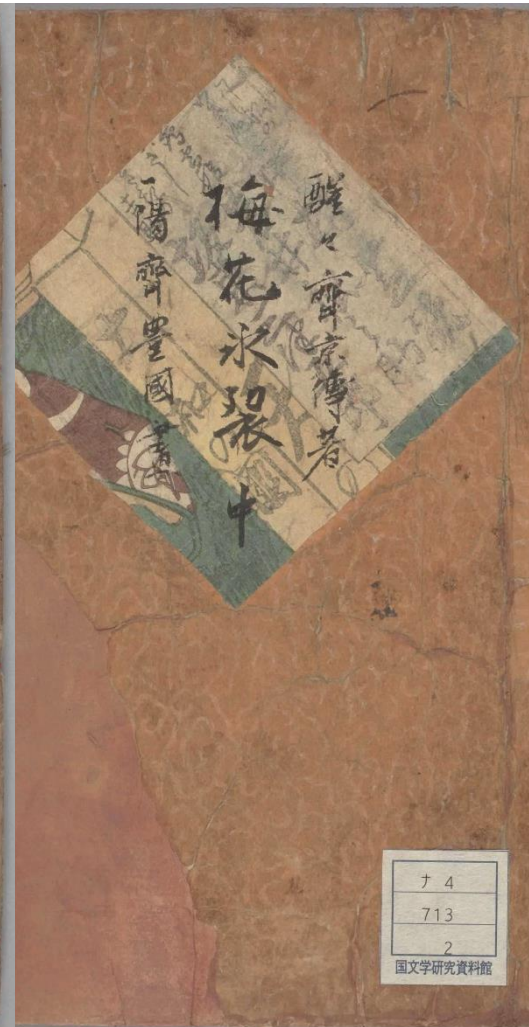 醒々齋京傳著
梅花氷裂 中
一陽齋豊國畫
ナ 4
713
2
国文学研究資料館